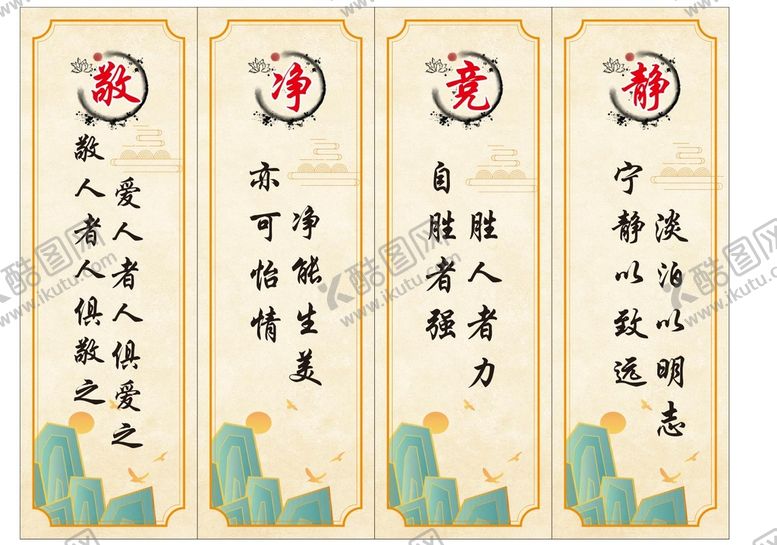 静
淡泊以明志
宁静以致远
竞
胜人者力
自胜者强
净
净能生美
亦可怡情
敬
爱人者人俱爱之
敬人者人俱敬之
酷图网
www.ikutu.com
酷图网
www.ikutu.com
酷图网
www.ikutu.com